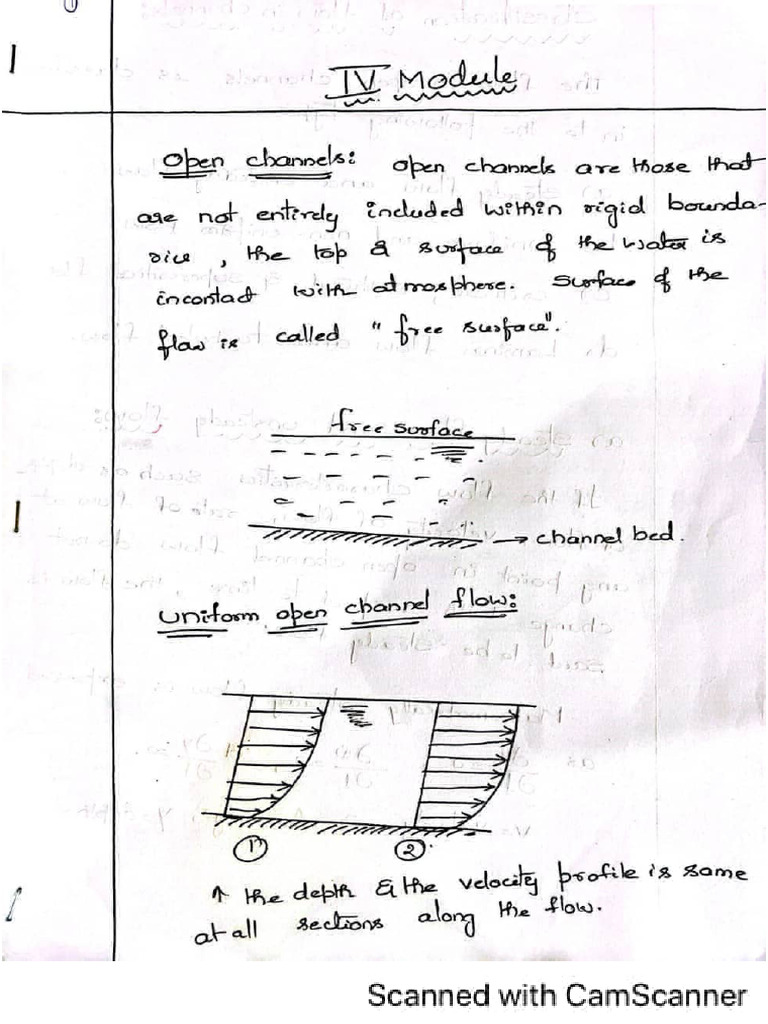 1
IV Module
Open channels: open channels are those that
are not entirely included within rigid bounda-
ries, the top & surface of the water is
incontact with atmosphere. Surface of the
flow is called "free surface".
free surface
→ channel bed.
Uniform open channel flow:
1 2
↑ the depth & the velocity profile is same
at all sections along the flow.
Scanned with CamScanner